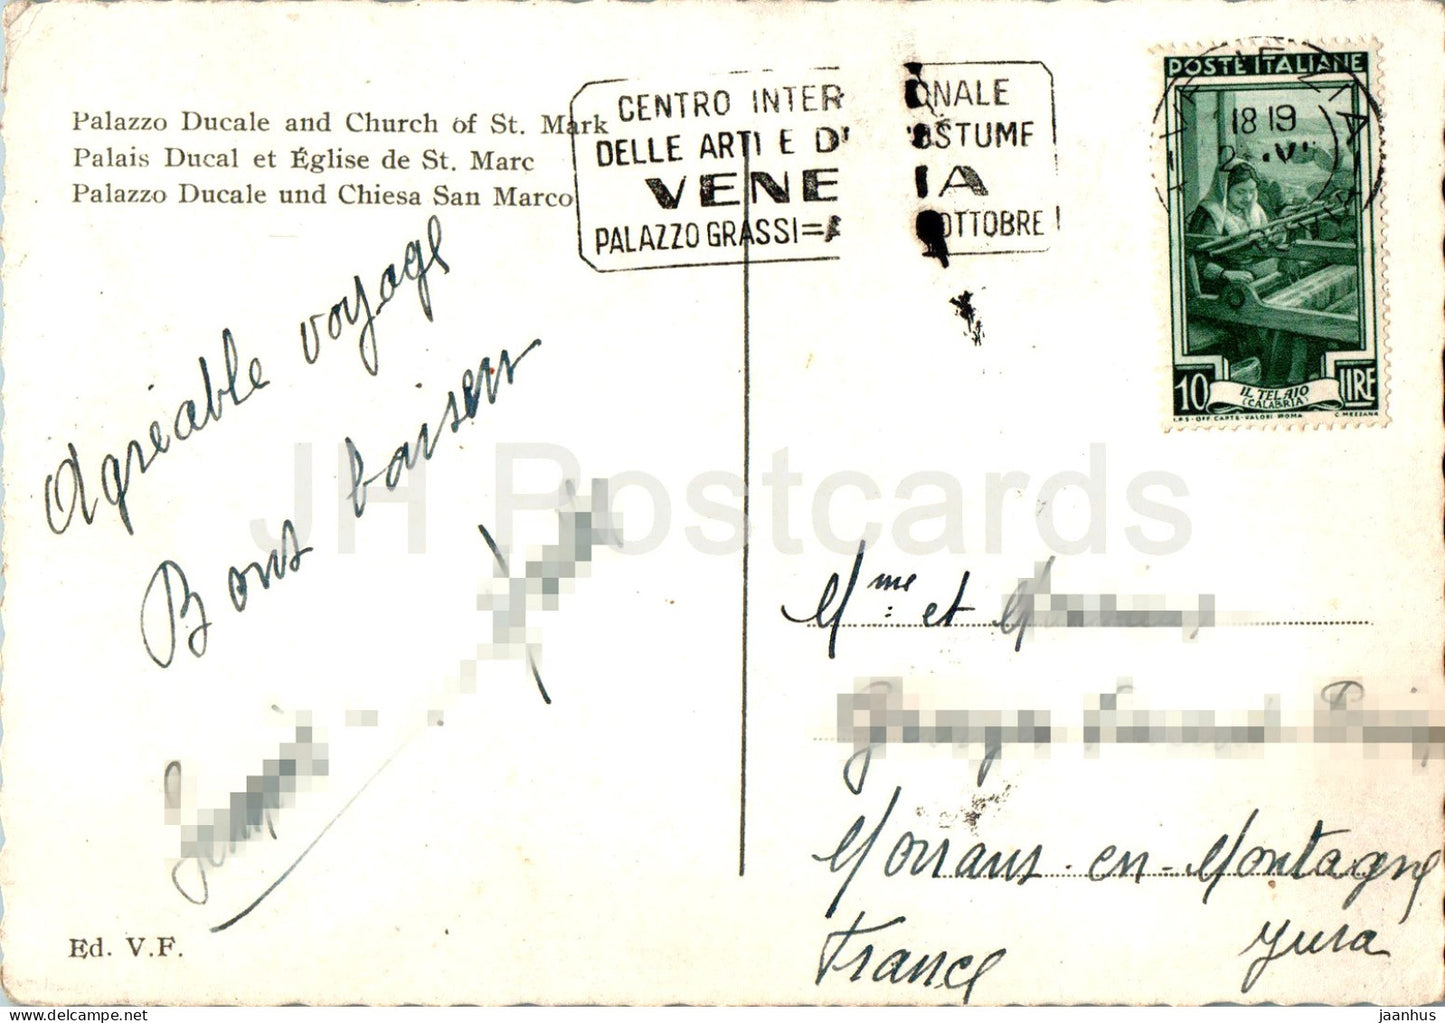 Palazzo Ducale and Church of St. Mark
Palais Ducal et Église de St. Marc
Palazzo Ducale und Chiesa San Marco
CENTRO INTER ONALE
DELLE ARTI E D' OSTUME
VENE IA
PALAZZO GRASSI= OTTOBRE
POSTE ITALIANE
18 19
10 IL TELAIO LIRE
(CALABRIA)
I.P.S-OFF. CARTE-VALORI ROMA C. MEZZANA
Agréable voyage
Bons baisers
JH Postcards
Mme et
Moirans-en-Montagne
Jura
France
Ed. V.F.
jaanhus